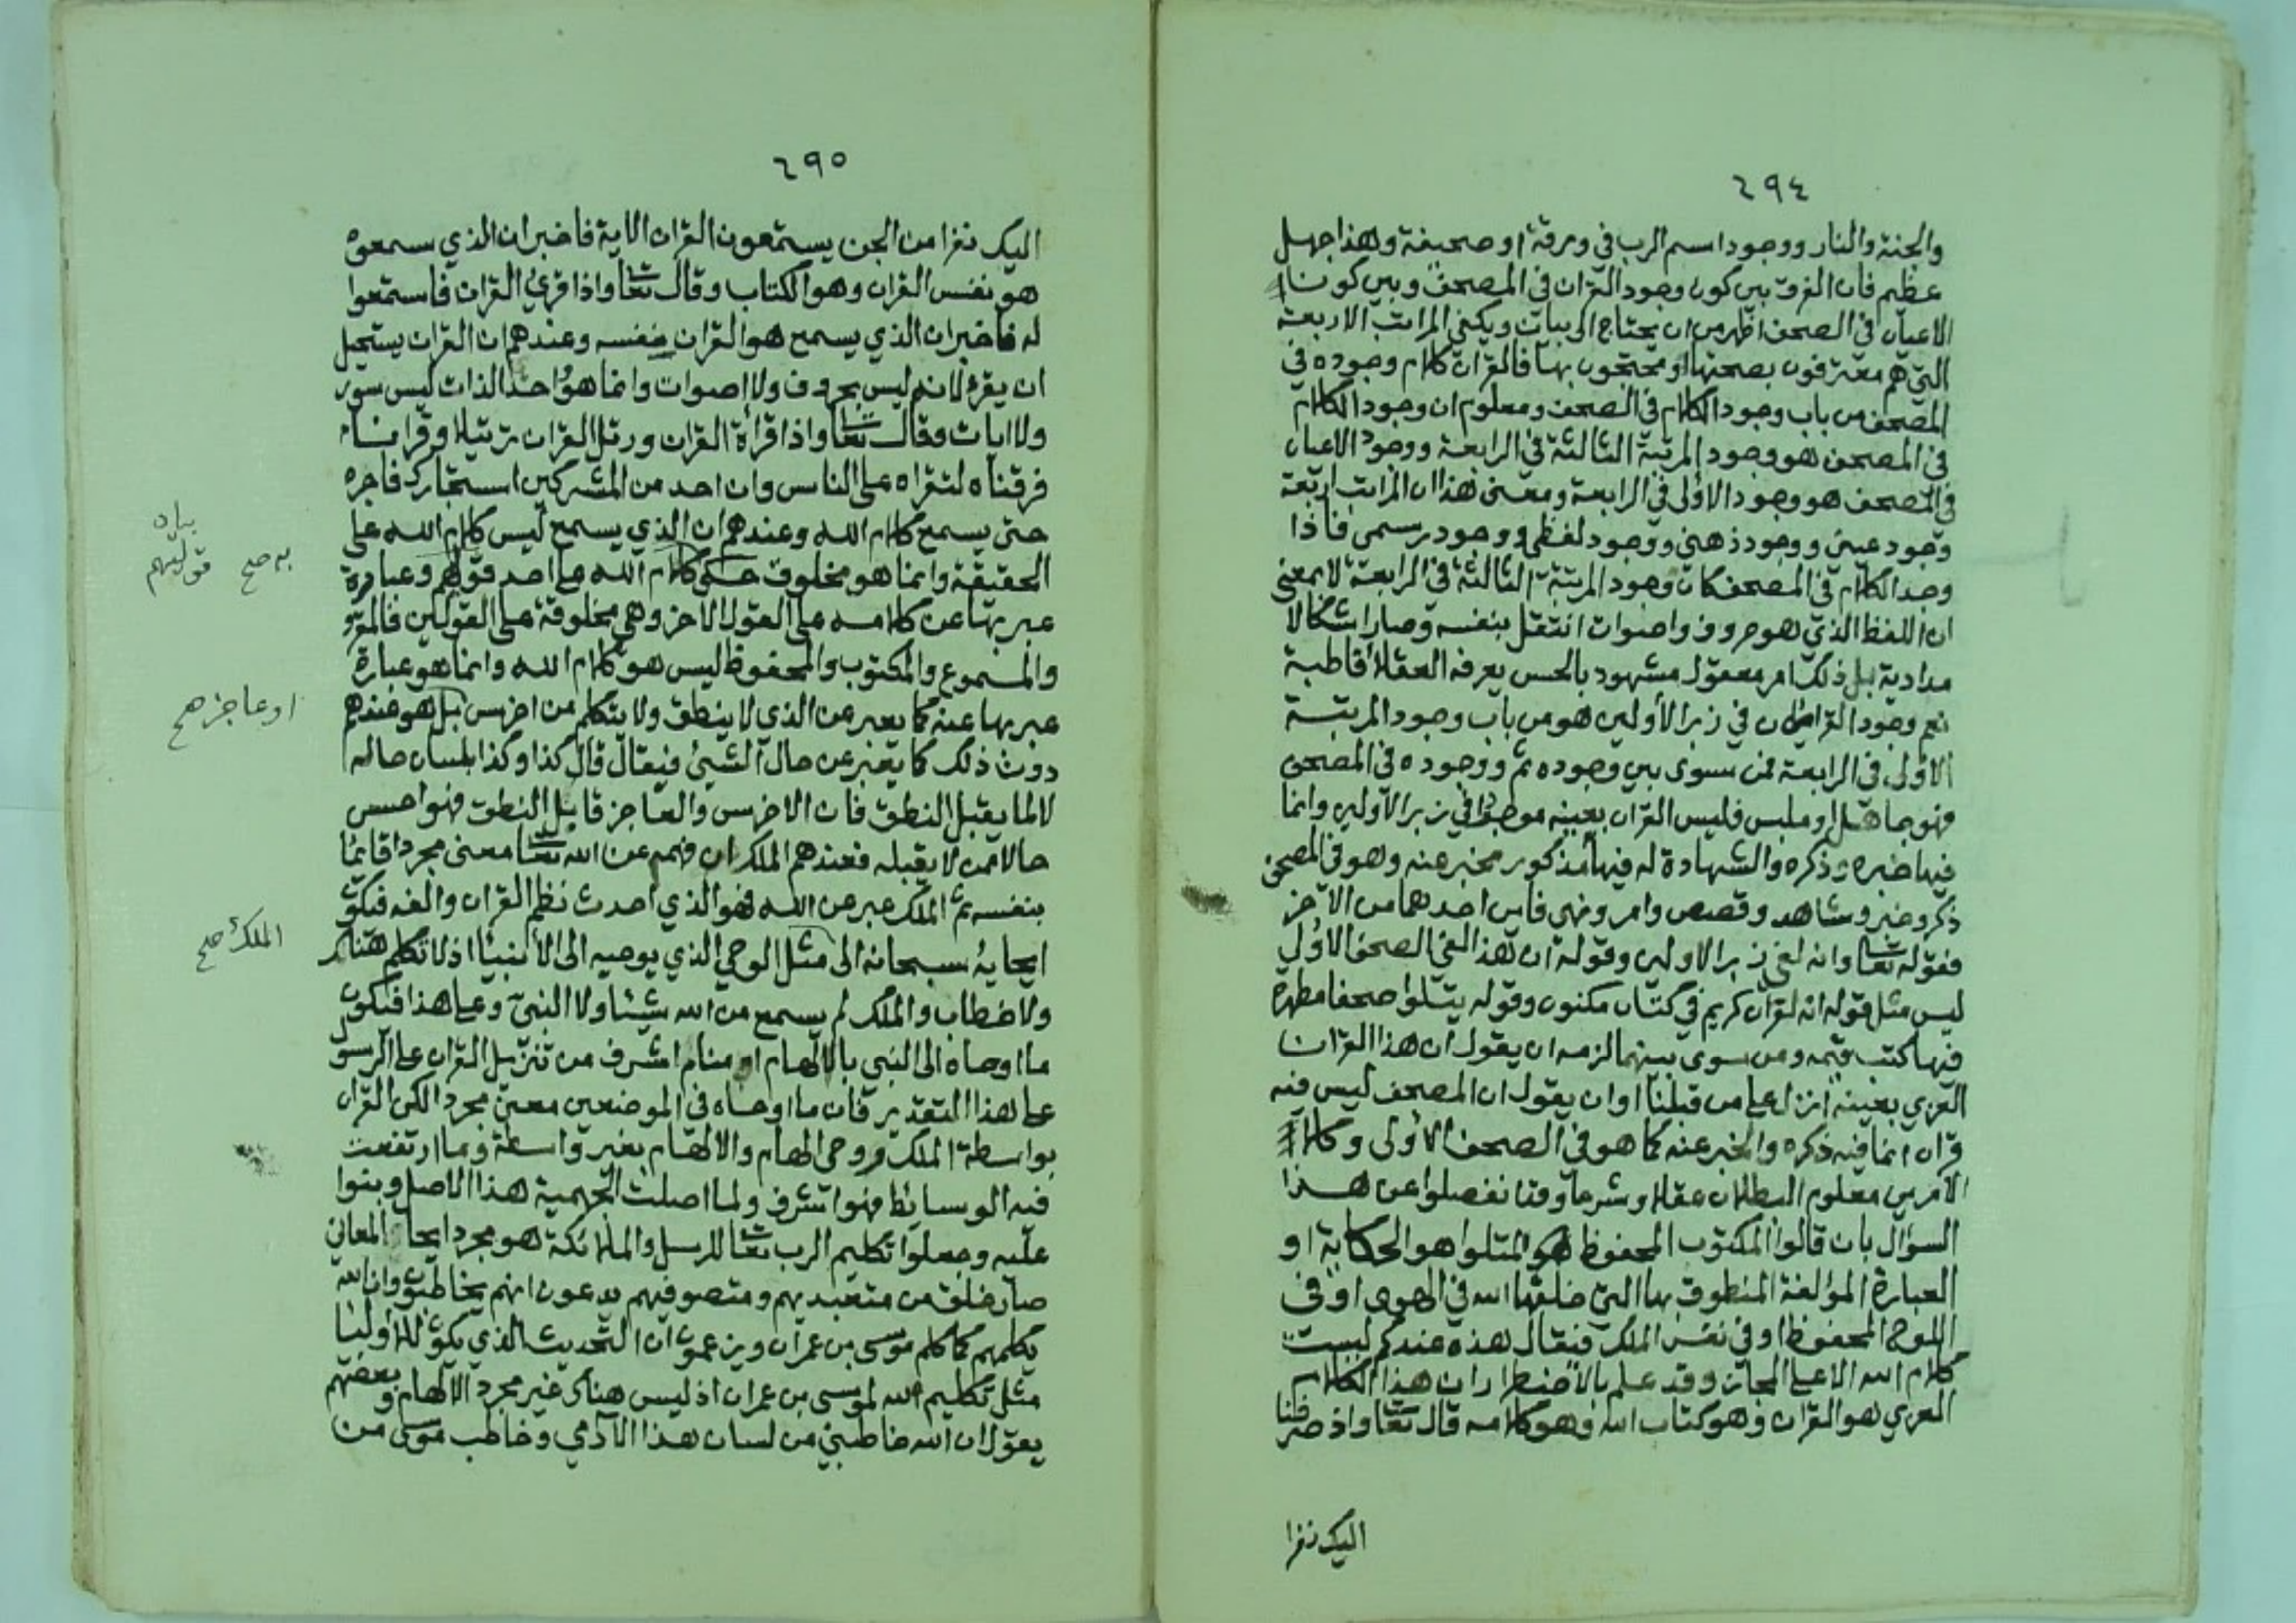 ٢٩٤
والجنة والنار ووجود اسم الرب في ورقة او صحيفة وهذا جهل
عظيم فان الفرق بين كون وجود القران في المصحف وبين كون
الاعيان في الصحف اظهر من ان يحتاج الى بيان ويكفي المراتب الاربعة
التي هم معترفون بصحتها ومحتجون بها فالقران كلام وجوده في
المصحف من باب وجود الكلام في الصحف ومعلوم ان وجود الكلام
في المصحف هو وجود المرتبة الثالثة في الرابعة ووجود الاعيان
في المصحف هو وجود الاولى في الرابعة ومعنى هذا ان المراتب اربعة
وجود عيني ووجود ذهني ووجود لفظي ووجود رسمي فاذا
وجد الكلام في المصحف كان وجود المرتبة الثالثة في الرابعة لا بمعنى
ان اللفظ الذي هو حروف واصوات انتقل بنفسه وصار اشكالا
مدادية بل ذلك امر معقول مشهود بالحس يعرفه العقلاء قاطبة
نعم وجود القران في زبر الأولين هو من باب وجود المرتبة
الاولى في الرابعة فمن سوى بين وجوده ثم ووجوده في المصحف
فهو جاهل او ملبس فليس القران بعينه موجودا في زبر الاولين وانما
فيها خبره وذكره والشهادة له فيها مذكور مخبر عنه وهو في المصحف
ذكر وخبر وشاهد وقصص وامر ونهي فاين احدهما من الآخر
فقوله تعالى وانه لفي زبر الاولين وقوله ان هذا لفي الصحف الاولى
ليس مثل قوله انه لقران كريم في كتاب مكنون وقوله يتلوا صحفا مطهرة
فيها كتب قيمه ومن سوى بينهما لزمه ان يقول ان هذا القران
العربي بعينه انزل على من قبلنا او ان يقول ان المصحف ليس فيه
قران انما فيه ذكره والخبر عنه كما هو في الصحف الاولى وكلا
الامرين معلوم البطلان عقلا وشرعا وقد تفصلوا عن هذا
السؤال بان قالوا المكتوب المحفوظ المتلوا هو الحكاية او
العبارة المؤلفة المنطوق بها التي خلقها الله في الهوى او في
اللوح المحفوظ او في نفس الملك فيقال هذه عندكم ليست
كلام الله الا على المجاز وقد علم بالاضطرار ان هذا الكلام
العربي هو القران وهو كتاب الله وهو كلامه قال تعا واذ صرفنا
اليك نفرا
٢٩٥
اليك نفرا من الجن يستمعون القران الاية فاخبر ان الذي سمعوه
هو نفس القران وهو الكتاب وقال تعا واذا قرئ القران فاستمعوا
له فاخبر ان الذي يسمع هو القران بنفسه وعندهم ان القران يستحيل
ان يقرء لانه ليس بحروف ولا اصوات وانما هو واحد الذات ليس سور
ولا ايات وقال تعا واذا قرأة القران ورتل القران ترتيلا وقرانا
فرقناه لتقراه على الناس وان احد من المشركين استجارك فاجره
حتى يسمع كلام الله وعندهم ان الذي يسمع ليس كلام الله على
الحقيقة وانما هو مخلوق حكي كلام الله على احد قولهم وعبارة
عبر بها عن كلامه على القول الاخر وهي مخلوقة على القولين فالمقرو
والمسموع والمكتوب والمحفوظ ليس هو كلام الله وانما هو عبارة
عبر بها عنه كما يعبر عن الذي لا ينطق ولا يتكلم من اخرس بل هو عندهم
دون ذلك كما يعبر عن حال الشئ فيقال قال كذا وكذا بلسان حاله
لا لما يقبل النطق فان الاخرس والعاجز قابل النطق فهو احسن
حالا ممن لا يقبله فعندهم الملك ان فهم عن الله تعا معنى مجردا قائما
بنفسه ثم الملك عبر عن الله فهو الذي احدث نظم القران والفه فيكون
ايحايه سبحانه الى مثل الوحي الذي يوحيه الى الأنبيا اذ لا تكلم هناك
ولا خطاب والملك لم يسمع من الله شيئا ولا النبي وعلى هذا فيكون
ما اوحاه الى النبي بالالهام او منام اشرف من تنزيل القران على الرسول
على هذا التقدير فان ما اوحاه في الموضعين معنى مجرد لكن القران
بواسطة الملك ووحي الهام والالهام بغير واسطة وما ارتفعت
فيه الوسائط فهو اشرف ولما اصلت الجهمية هذا الاصل وبنوا
عليه وجعلوا تكليم الرب تعا للرسل والملائكة هو مجرد ايحاء المعاني
صار خلق من متعبديهم ومتصوفيهم يدعون انهم يخاطبون وان الله
يكلمهم كما كلم موسى بن عمران ويزعمون ان التحديث الذي يكون للاوليا
مثل تكليم الله لموسى بن عمران اذ ليس هناك غير مجرد الالهام وبعضهم
يقول ان الله خاطبني من لسان هذا الآدمي وخاطب موسى من
به صح
قوليهم
او عاجز صح
الملك صح